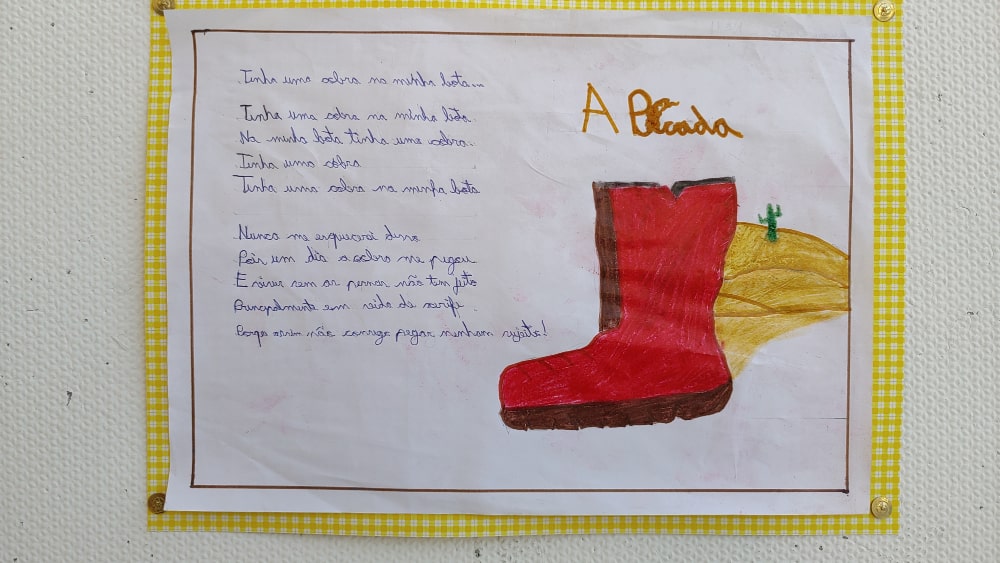 Tinha uma cobra na minha bota...
Tinha uma cobra na minha bota.
Na minha bota tinha uma cobra.
Tinha uma cobra
Tinha uma cobra na minha bota
Nunca me esquecerei disso
Pois um dia a cobra me pegou
E viver sem as pernas não tem jeito
Principalmente em vida de xerife.
assim não consigo pegar nenhum sujeito!
A Picada